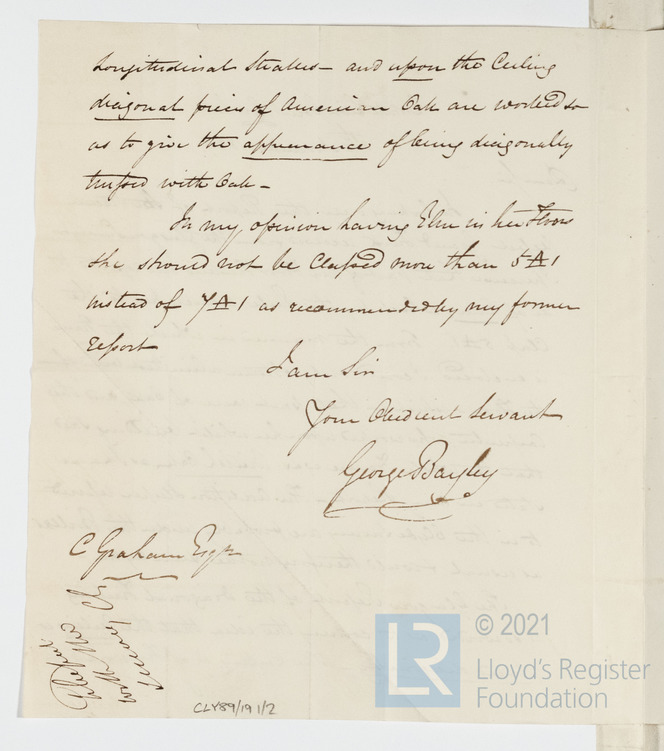 longitudinal Strakes – and upon the Ceiling
diagonal pieces of American Oak are worked so
as to give the appearance of being diagonally
trussed with Oak –
In my opinion having Elm in her Floors
she should not be Classed more than 5 A 1
instead of 7 A 1 as recommended by my former
report
I am Sir
Your Obedient Servant
George Bayley
C Graham Esqr
with
CLY89/19 1/2
© 2021
LR
Lloyd's Register
Foundation